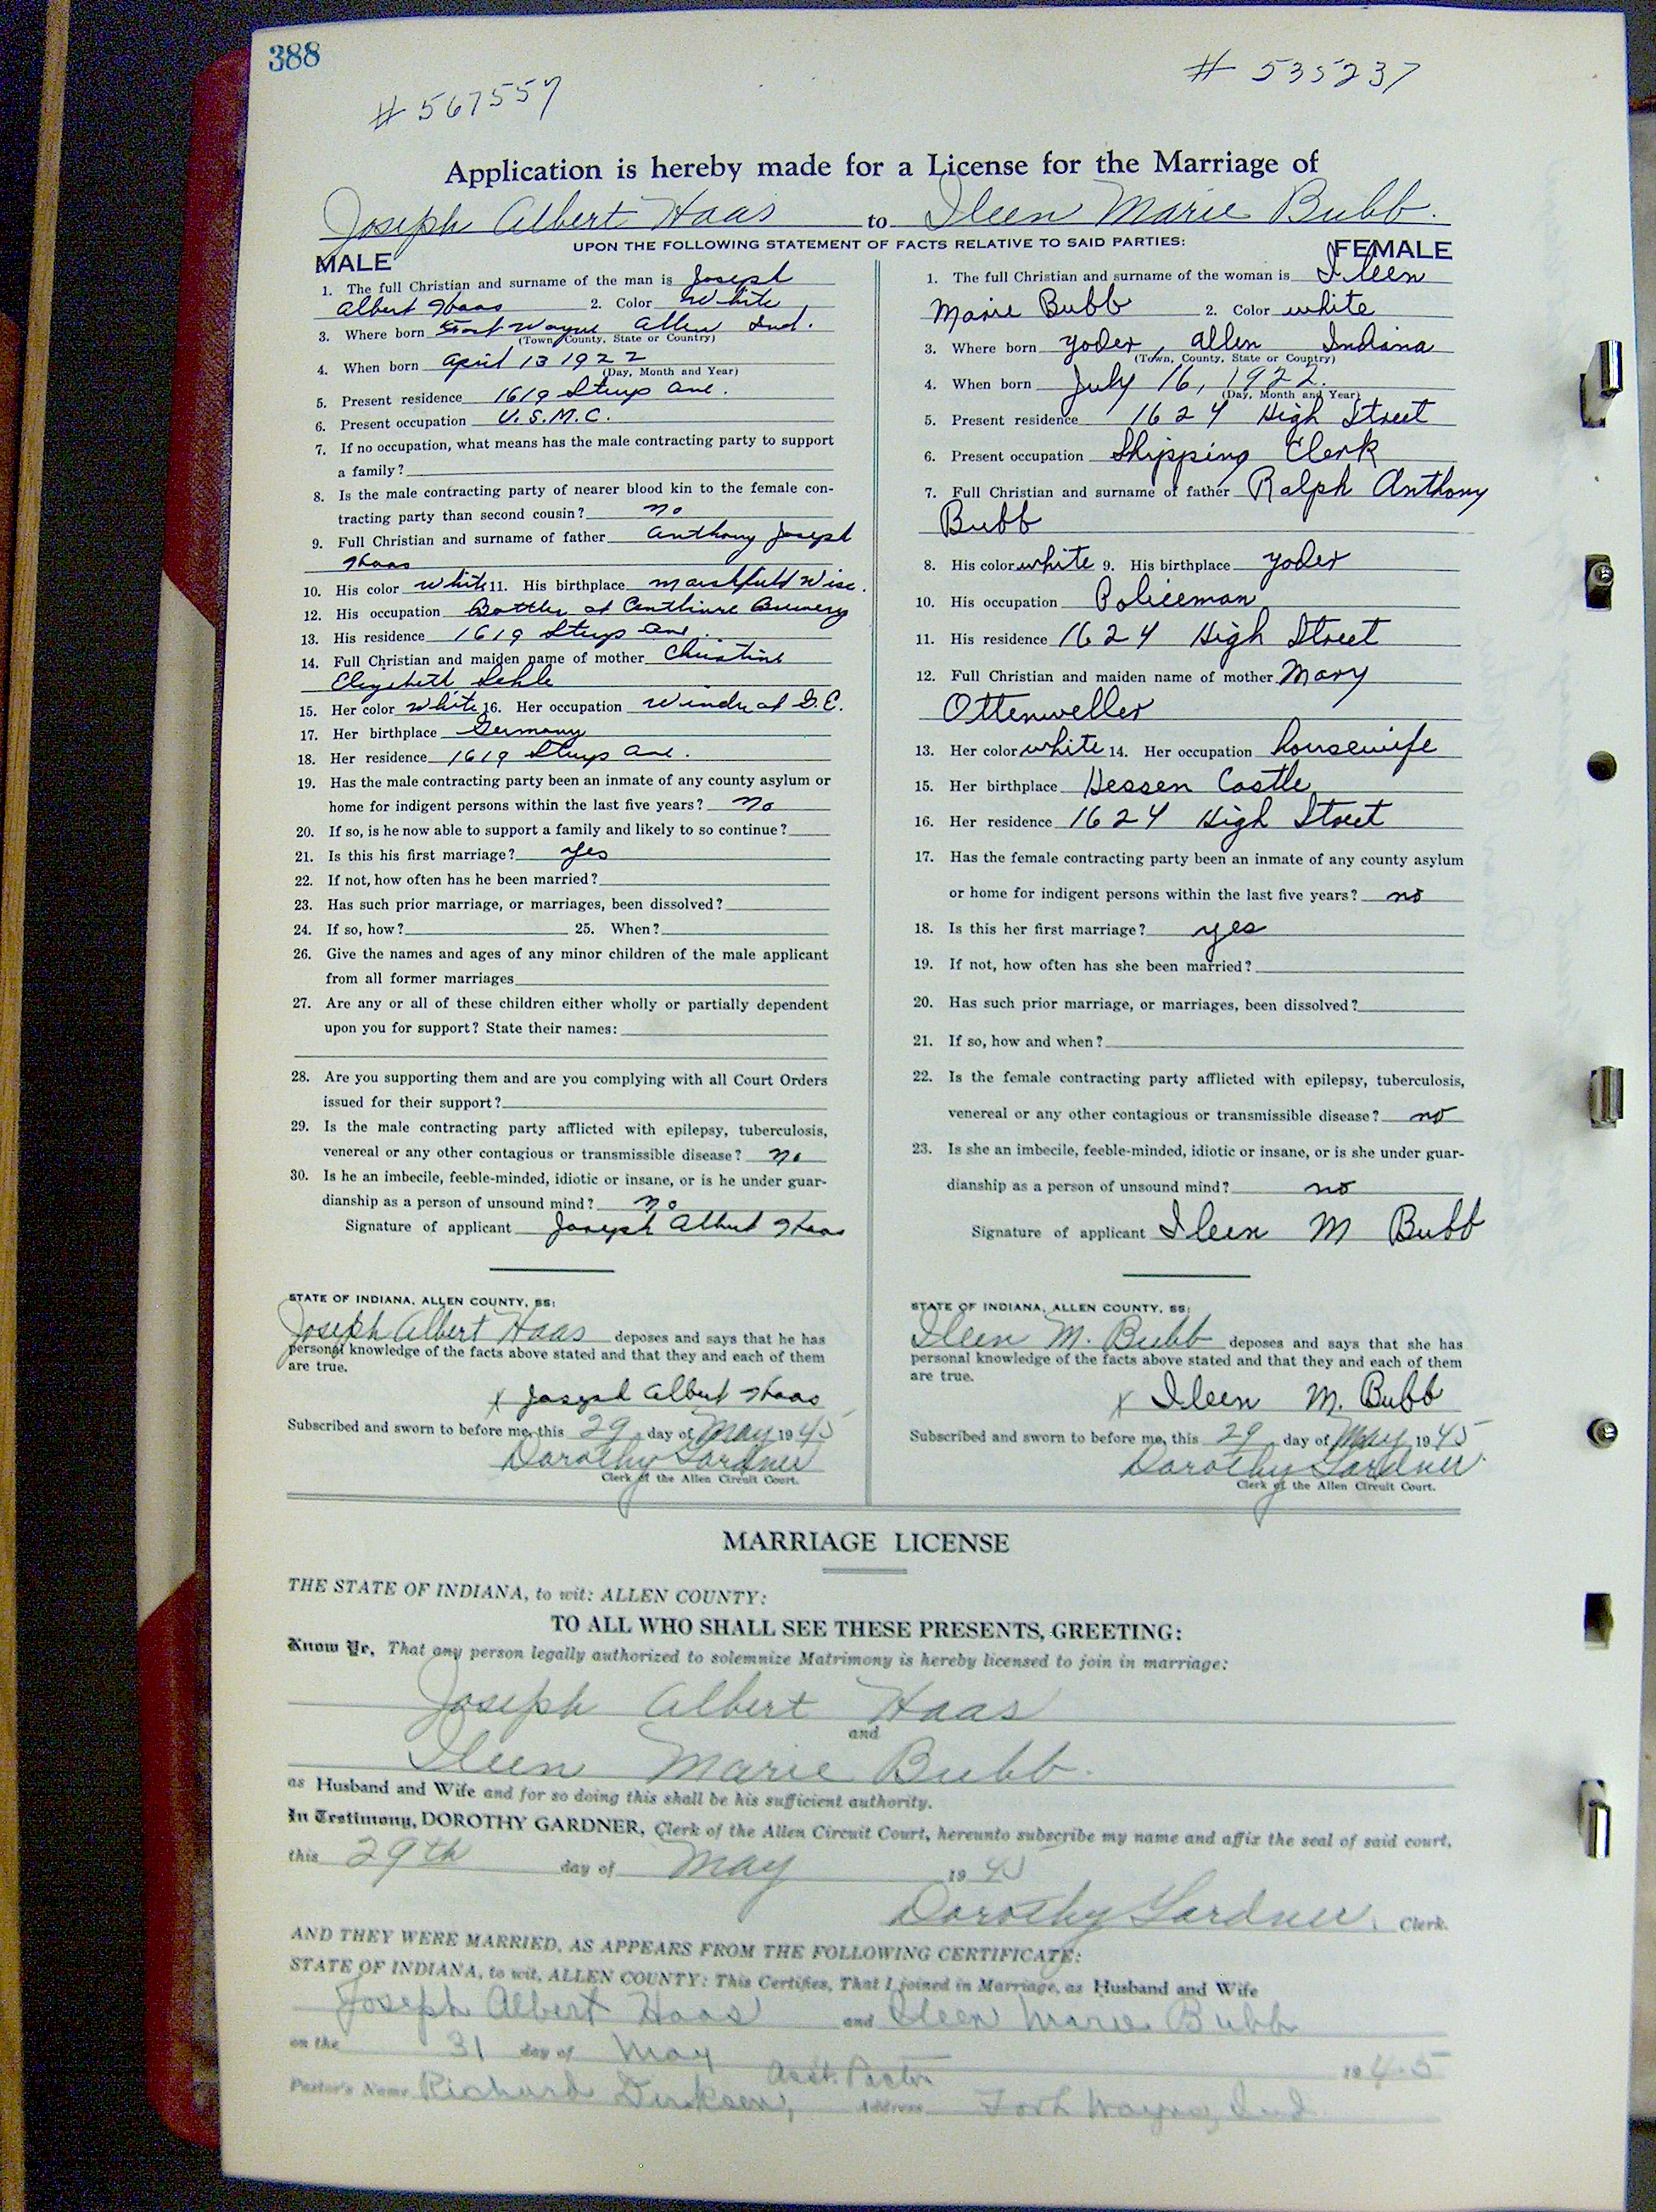 388
# 567557
# 535237
Application is hereby made for a License for the Marriage of
Joseph Albert Haas to Ileen Marie Bubb.
UPON THE FOLLOWING STATEMENT OF FACTS RELATIVE TO SAID PARTIES:
MALE
1. The full Christian and surname of the man is Joseph
Albert Haas 2. Color White
3. Where born Fort Wayne Allen Ind.
(Town, County, State or Country)
4. When born April 13 1922
(Day, Month and Year)
5. Present residence 1619 Sturp Ave.
6. Present occupation U.S.M.C.
7. If no occupation, what means has the male contracting party to support
a family?
8. Is the male contracting party of nearer blood kin to the female con-
tracting party than second cousin? no
9. Full Christian and surname of father Anthony Joseph
Haas
10. His color white 11. His birthplace Marshfield Wisc.
12. His occupation Bottler at Centlivre Brewery
13. His residence 1619 Ave.
14. Full Christian and maiden name of mother Christine
Elizabeth
15. Her color white 16. Her occupation Winder at G.E.
17. Her birthplace Germany
18. Her residence 1619 Ave.
19. Has the male contracting party been an inmate of any county asylum or
home for indigent persons within the last five years? no
20. If so, is he now able to support a family and likely to so continue?
21. Is this his first marriage? yes
22. If not, how often has he been married?
23. Has such prior marriage, or marriages, been dissolved?
24. If so, how? 25. When?
26. Give the names and ages of any minor children of the male applicant
from all former marriages
27. Are any or all of these children either wholly or partially dependent
upon you for support? State their names:
28. Are you supporting them and are you complying with all Court Orders
issued for their support?
29. Is the male contracting party afflicted with epilepsy, tuberculosis,
venereal or any other contagious or transmissible disease? no
30. Is he an imbecile, feeble-minded, idiotic or insane, or is he under guar-
dianship as a person of unsound mind? no
Signature of applicant Joseph Albert Haas
STATE OF INDIANA, ALLEN COUNTY, SS:
Joseph Albert Haas deposes and says that he has
personal knowledge of the facts above stated and that they and each of them
are true.
x Joseph Albert Haas
Subscribed and sworn to before me, this 29 day of May 1945
Dorothy Gardner
Clerk of the Allen Circuit Court.
FEMALE
1. The full Christian and surname of the woman is Ileen
Marie Bubb 2. Color white
3. Where born Yoder, Allen Indiana
(Town, County, State or Country)
4. When born July 16, 1922.
(Day, Month and Year)
5. Present residence 1624 High Street
6. Present occupation Shipping Clerk
7. Full Christian and surname of father Ralph Anthony
Bubb
8. His color white 9. His birthplace Yoder
10. His occupation Policeman
11. His residence 1624 High Street
12. Full Christian and maiden name of mother Mary
Ottenweller
13. Her color white 14. Her occupation housewife
15. Her birthplace Hessen Castle
16. Her residence 1624 High Street
17. Has the female contracting party been an inmate of any county asylum
or home for indigent persons within the last five years? no
18. Is this her first marriage? yes
19. If not, how often has she been married?
20. Has such prior marriage, or marriages, been dissolved?
21. If so, how and when?
22. Is the female contracting party afflicted with epilepsy, tuberculosis,
venereal or any other contagious or transmissible disease? no
23. Is she an imbecile, feeble-minded, idiotic or insane, or is she under guar-
dianship as a person of unsound mind? no
Signature of applicant Ileen M Bubb
STATE OF INDIANA, ALLEN COUNTY, SS:
Ileen M. Bubb deposes and says that she has
personal knowledge of the facts above stated and that they and each of them
are true.
x Ileen M. Bubb
Subscribed and sworn to before me, this 29 day of May 1945
Dorothy Gardner
Clerk of the Allen Circuit Court.
MARRIAGE LICENSE
THE STATE OF INDIANA, to wit: ALLEN COUNTY:
TO ALL WHO SHALL SEE THESE PRESENTS, GREETING:
Know Ye, That any person legally authorized to solemnize Matrimony is hereby licensed to join in marriage:
Joseph Albert Haas
and
Ileen Marie Bubb.
as Husband and Wife and for so doing this shall be his sufficient authority.
In Testimony, DOROTHY GARDNER, Clerk of the Allen Circuit Court, hereunto subscribe my name and affix the seal of said court,
this 29th day of May 1945
Dorothy Gardner, Clerk.
AND THEY WERE MARRIED, AS APPEARS FROM THE FOLLOWING CERTIFICATE:
STATE OF INDIANA, to wit, ALLEN COUNTY: This Certifies, That I joined in Marriage, as Husband and Wife
Joseph Albert Haas and Ileen Marie Bubb
on the 31 day of May 1945
Asst. Pastor
Pastor's Name Richard Dirksen, Address Fort Wayne, Ind.